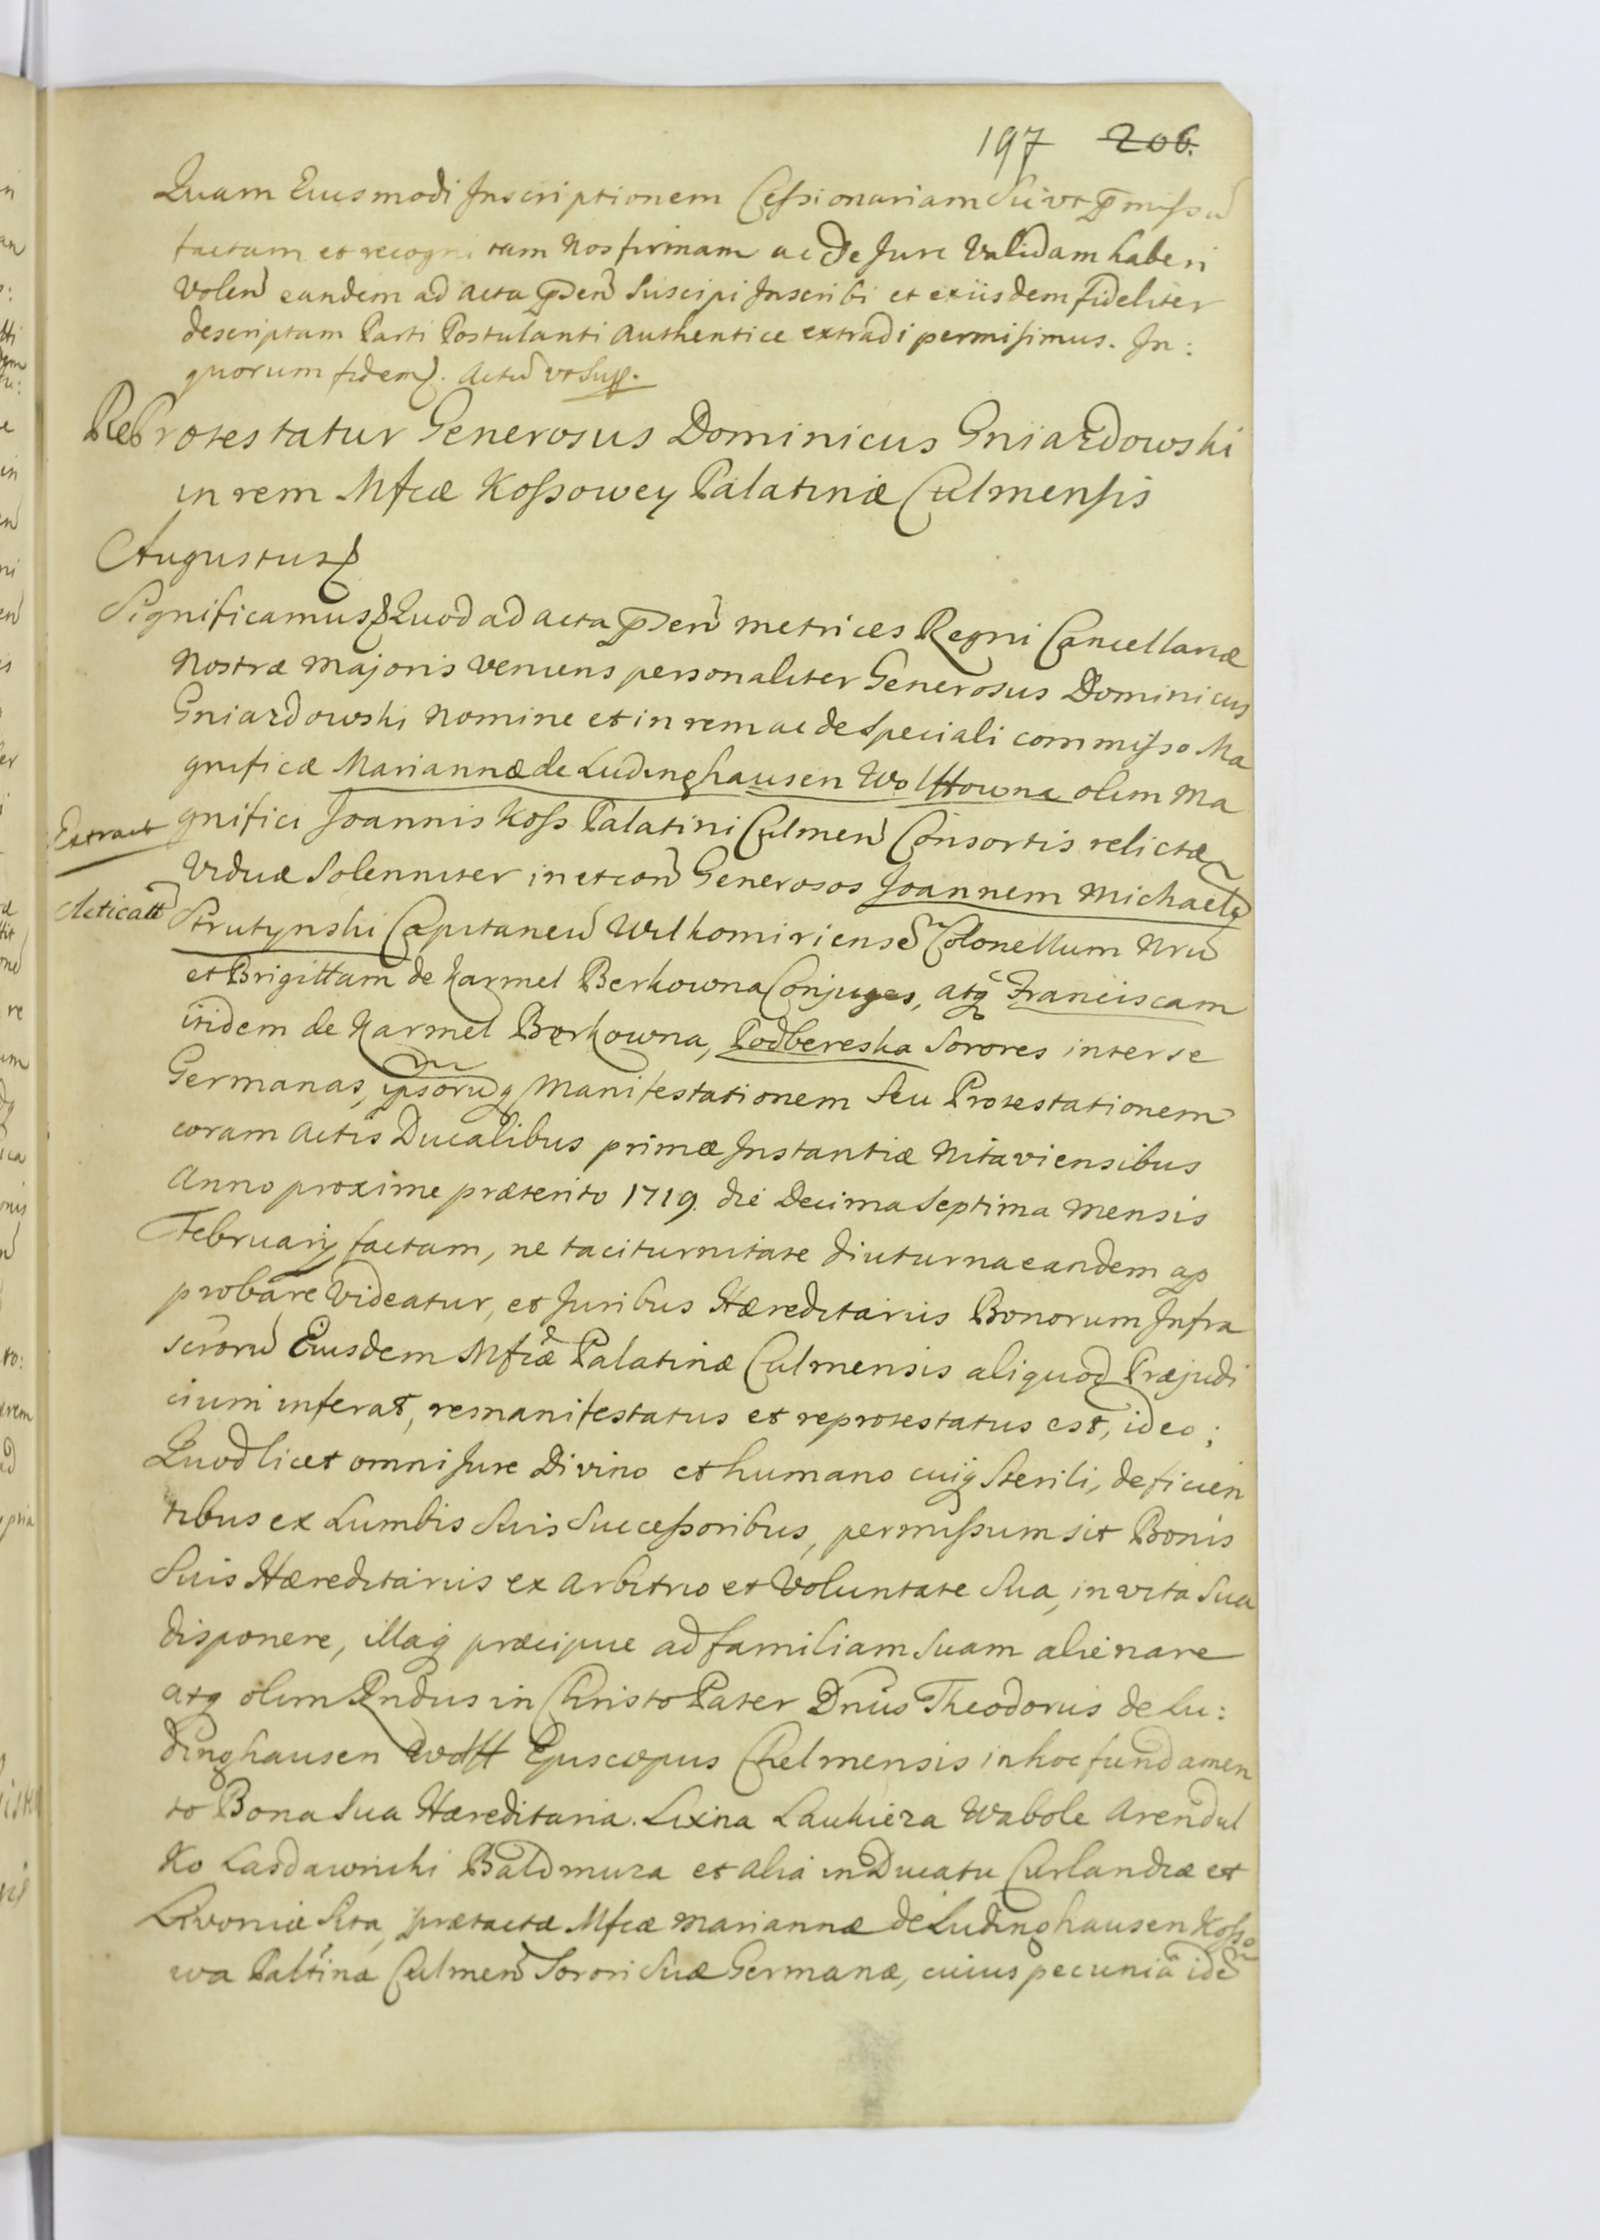 197 206.
Quam Eiusmodi Inscriptionem Cessionariam Sic ut p̄missũ
factam et recognitam Nos firmam ac De Jure Validam haberi
Volen̄ eandem ad acta p̄sen̄ Suscipi Inscribi et exiisdem fideliter
descriptam Parti Postulanti Authentice extradi permisimus. In:
quorum fidem. Actũ ut Supp.
ReProtestatur Generosus Dominicus Gniazdowski
in rem Mfcæ Kossowey Palatinæ Culmensis
Augustus
Significamus Quod ad acta p̄sen̄ Metrices Regni Cancellariæ
Nostræ Majoris veniens personaliter Generosus Dominicus
Gniazdowski Nomine et in rem ac de Speciali commisso Ma
gnificæ Mariannæ de Ludinghausen Wolffowna olim Ma
Extract
gnifici Joannis Koss Palatini Culmen̄ Consortis relictæ
Viduæ Solenniter in et con̄ Generosos Joannem Michaelē
Acticatt
Strutynski Capitaneũ Wilkomiriensē Colonellum Nrũ
et Brigittam de Karmel Berkowna Conjuges, atq Franciscam
itidem de Karmel Berkowna, Podbereska Sorores inter se
Germanas, ipsorũq Manifestationem Seu Protestationem
coram Actis Ducalibus primæ Instantiæ Mitaviensibus
Anno proxime præterito 1719. die Decima Septima Mensis
Februarij factam, ne taciturnitate diuturna eandem ap
probare Videatur, et Juribus Hæreditariis Bonorum Infra
scrorũ Eiusdem Mfcæ Palatinæ Culmensis aliquod Præjudi
cium inferat, remanifestatus et reprotestatus est, ideo;
Quod licet omni Jure Divino et humano cuiq Sterili, deficien
tibus ex Lumbis Suis Successoribus, permissum sit Bonis
Suis Hæreditariis ex arbitrio et Voluntate Sua, in vita Sua
disponere, illaq præcipue ad familiam Suam alienare
atq olim Rndus in Christo Pater Dnus Theodorus de Lu:
dinghausen Wolff Episcopus Chelmensis in hoc fundamen
to Bona Sua Hæreditaria. Lixna Laukieza Wabole Arendul
Ko Lasdawniki Baldmuza et alia in Ducatu Curlandiæ et
Livoniæ Sita, prætactæ Mfcæ Mariannæ de Ludinghausen Kosso
wa Paltinæ Culmen̄ Sorori Suæ Germanæ, cuius pecuniâ idē